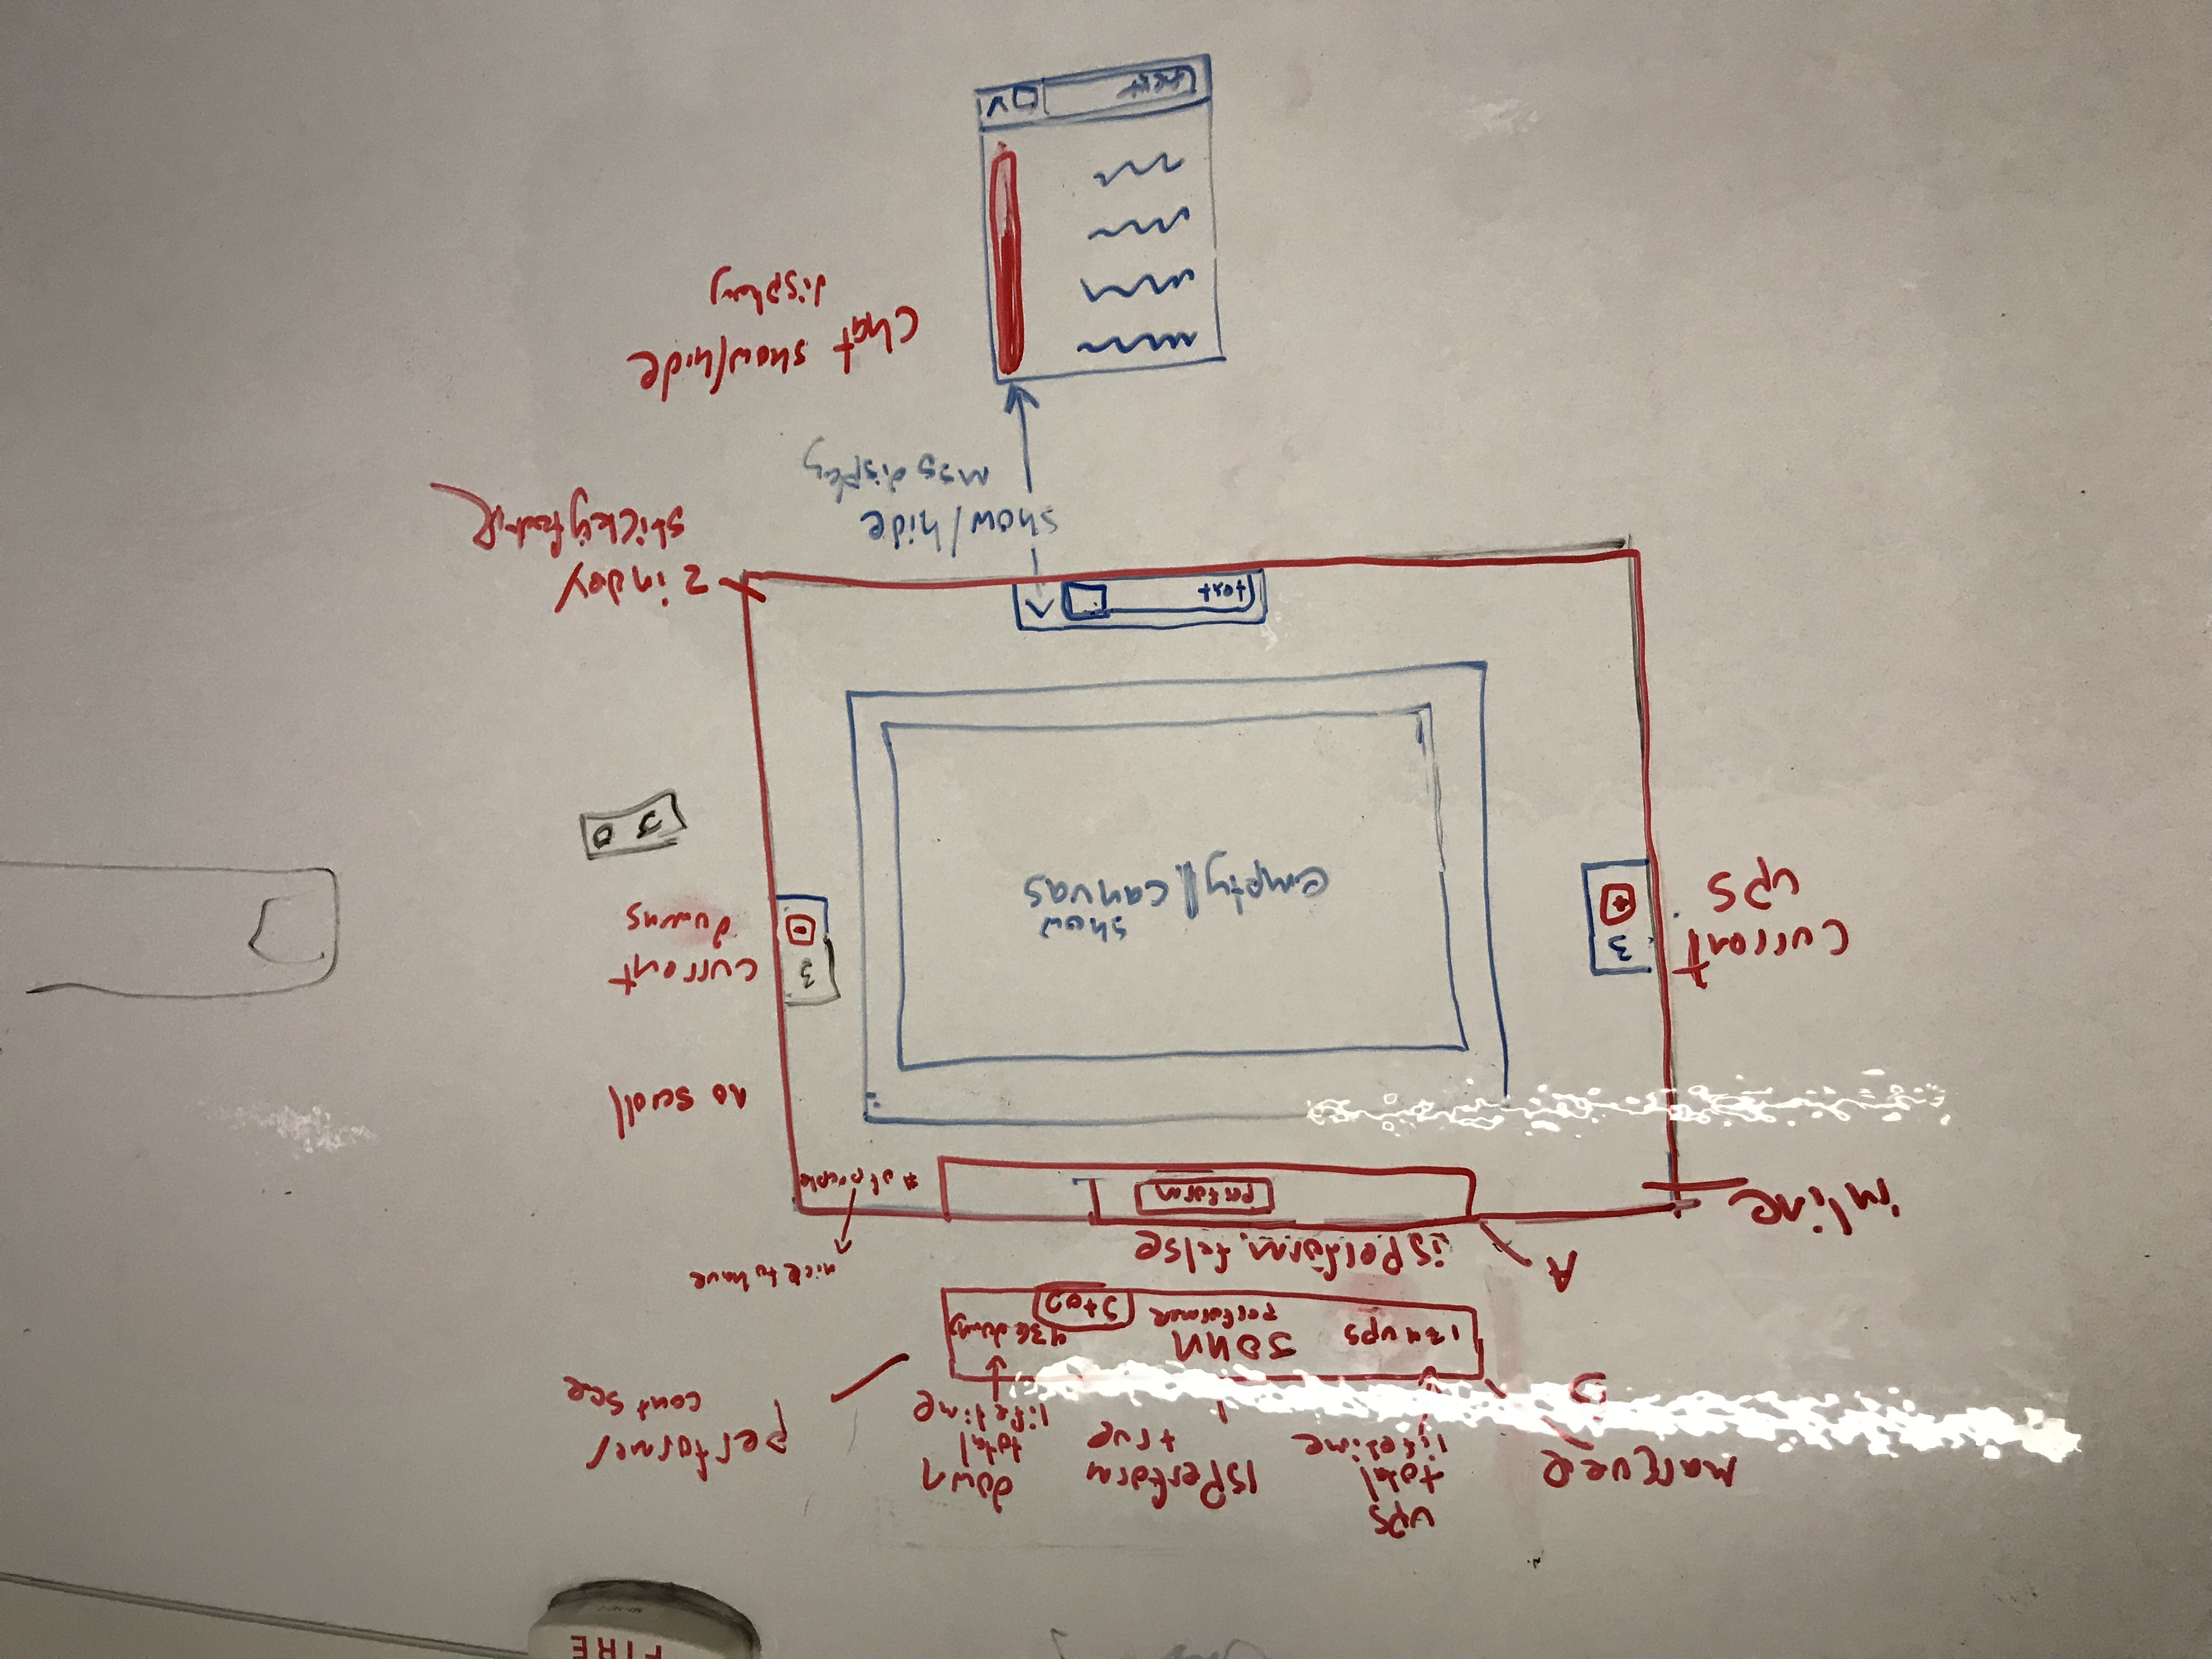 FIRE
Marquee
ups
total
lifetime
isPerform
true
down
total
lifetime
performer
cont see
JOHN
performer
ups
downs
Stop
A
isPerform false
nice to have
inline
perform
# of people
no scroll
current
ups
3
+
empty || show canvas
3
-
current
downs
text
^
z index
sticky footer
show/hide
msg display
chat show/hide
display
text
v